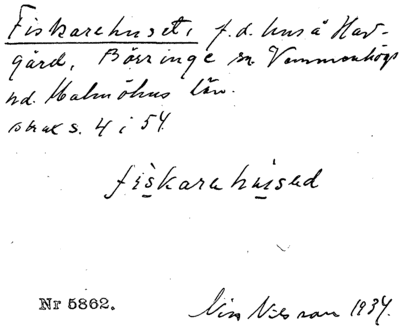 Fiskarehuset, f.d. hus å Hav-
gård, Börringe sn Vemmenhögs
hd. Malmöhus län.
s. 4 i 54.
fiskarehuised
Nr 5862.
Nils Nilsson 1934.